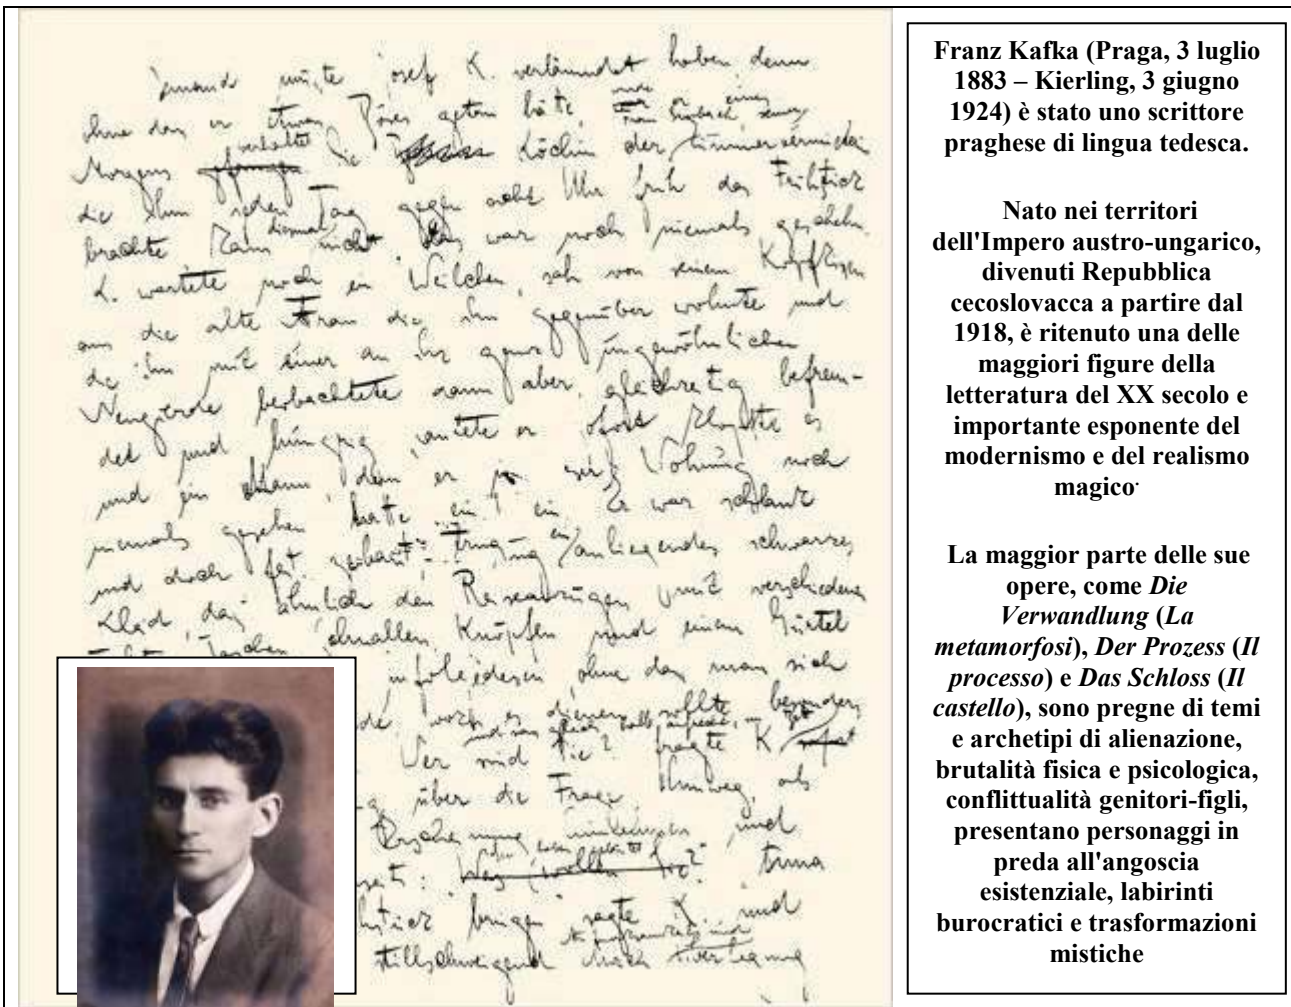 jemand mußte Josef K. verläumdet haben, denn
ohne daß er etwas Böses getan hätte,
verhaftet
Morgens gefangen Die Köchin der Zimmervermieterin
die ihm jeden Tag gegen acht Uhr früh das Frühstück
brachte kam diesmal nicht. Das war noch niemals geschehn.
K. wartete noch ein Weilchen, sah von seinem Kopfkissen
aus die alte Frau die ihm gegenüber wohnte und
die ihn mit einer an ihr ganz ungewöhnlichen
Neugierde beobachtete dann aber, gleichzeitig befrem-
det und hungrig, läutete er. Sofort klopfte es
und ein Mann, den er in dieser Wohnung noch
niemals gesehen hatte trat ein. Er war schlank
und doch fest gebaut, er trug ein anliegendes schwarzes
Kleid, das ähnlich den Reiseanzügen mit verschiedenen
Taschen, Schnallen, Knöpfen und einem Gürtel
infolgedessen, ohne daß man sich
wozu es dienen sollte, besonders
"Wer sind Sie?" fragte K.
über die Frage hinweg, als
Erscheinung hinnehmen und
"Was wollen Sie?" Anna
bringen" sagte K. und
stillschweigend durch Überlegung
Franz Kafka (Praga, 3 luglio
1883 – Kierling, 3 giugno
1924) è stato uno scrittore
praghese di lingua tedesca.
Nato nei territori
dell'Impero austro-ungarico,
divenuti Repubblica
cecoslovacca a partire dal
1918, è ritenuto una delle
maggiori figure della
letteratura del XX secolo e
importante esponente del
modernismo e del realismo
magico.
La maggior parte delle sue
opere, come Die
Verwandlung (La
metamorfosi), Der Prozess (Il
processo) e Das Schloss (Il
castello), sono pregne di temi
e archetipi di alienazione,
brutalità fisica e psicologica,
conflittualità genitori-figli,
presentano personaggi in
preda all'angoscia
esistenziale, labirinti
burocratici e trasformazioni
mistiche